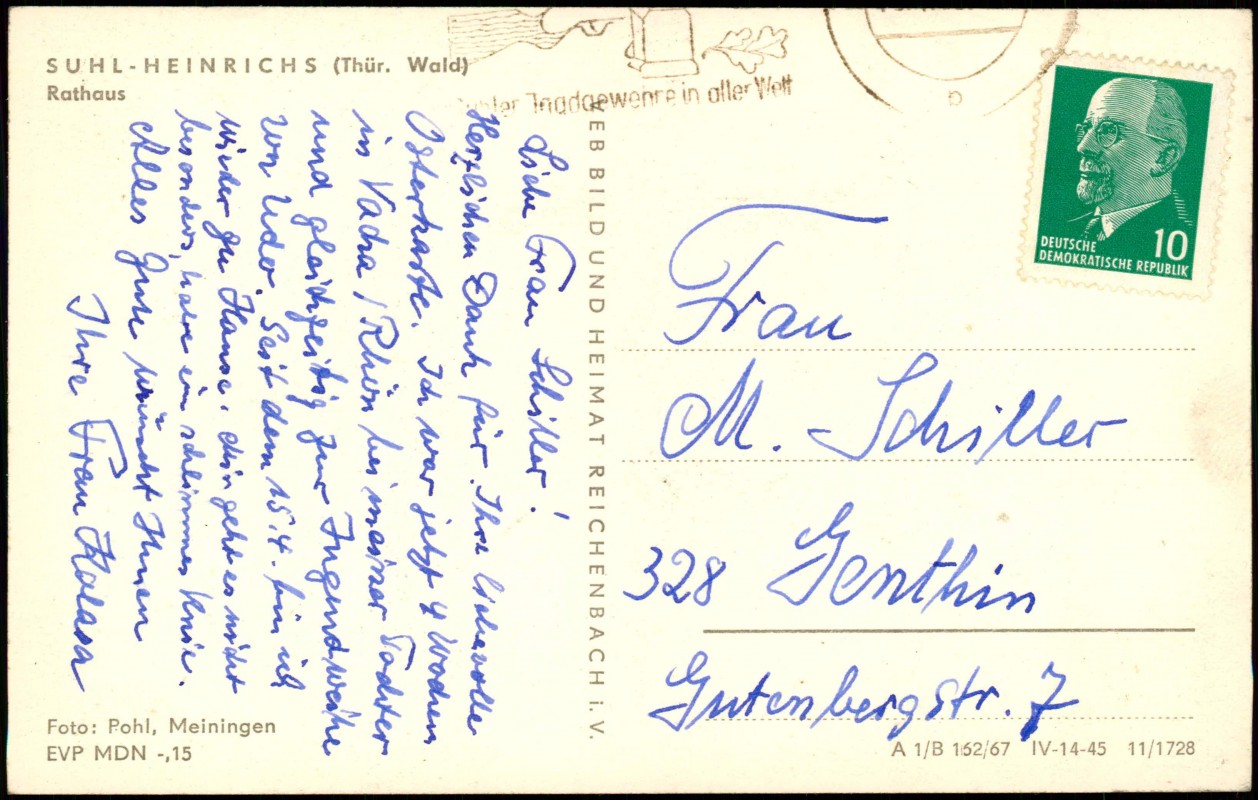 SUHL-HEINRICHS (Thür. Wald)
Rathaus
Jagdgewehre in aller Welt
DEUTSCHE
DEMOKRATISCHE REPUBLIK
10
Liebe Frau Schiller!
Herzlichen Dank für Ihre liebevolle
Osterkarte. Ich war jetzt 4 Wochen
in Vacha / Rhön bei meiner Tochter
und gleichzeitig zur Jugendweihe
von Udo. Seit dem 15.4. bin ich
wieder zu Hause, geht es nicht
besonders, habe ein schlimmes Knie.
Alles Gute wünscht Ihnen
Ihre Frau Kalasa
VEB BILD UND HEIMAT REICHENBACH i. V.
Frau
M. Schiller
328 Genthin
Gutenbergstr. 7
Foto: Pohl, Meiningen
EVP MDN -,15
A 1/B 152/67 IV-14-45 11/1728